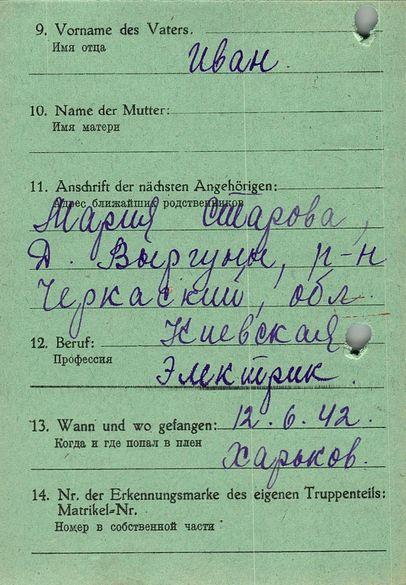 9. Vorname des Vaters.
Имя отца
Иван.
10. Name der Mutter:
Имя матери
11. Anschrift der nächsten Angehörigen:
Адрес ближайших родственников
Мария Старова,
Д. Выргуны, р-н
Черкаский, обл.
Киевская
12. Beruf:
Профессия
Электрик.
13. Wann und wo gefangen: 12.6.42.
Когда и где попал в плен
Харьков.
14. Nr. der Erkennungsmarke des eigenen Truppenteils:
Matrikel-Nr.
Номер в собственной части